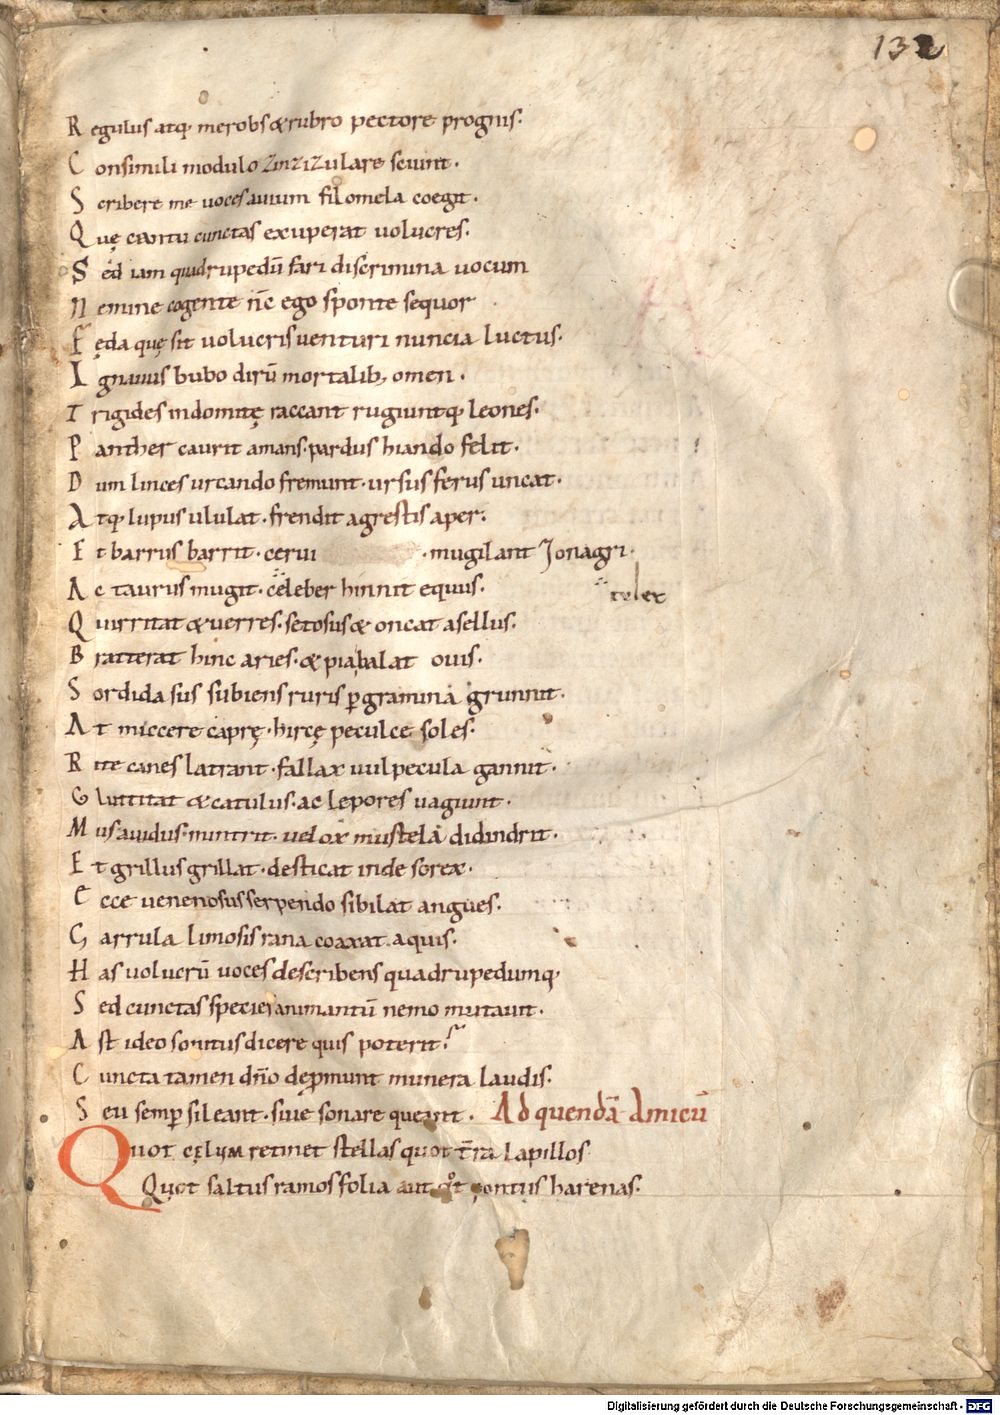 132
Regulus atq; merobs & rubro pectore prognis.
Consimili modulo zinzizulare sciunt.
Scribere me uoces auium filomela coegit.
Quę cantu cunctas exuperat uolucres.
Sed iam quadrupedū fari discrimina uocum
Nemine cogente nc̄ ego sponte sequor
Fęda quę sit uolucris uenturi nuncia luctus.
Ignauus bubo dirū mortalib; omen.
Trigides indomitę raccant rugiuntq; leones.
Panther caurit amans. pardus hiando felit.
Dum linces urcando fremunt. ursus ferus uncat.
Atq; lupus ululat. frendit agrestis aper.
Et barrus barrit. cerui . mugilant Jonagri.
Ac taurus mugit. celeber hinnit equus.
Quirritat & uerres. setosus & oncat asellus.
Bratterat hinc aries. & pia balat ouis.
Sordida sus subiens ruris p gramina grunnit.
At miccere caprę. hircę peculce soles.
Rite canes latrant. fallax uulpecula gannit.
Glattitat & catulus. ac lepores uagiunt.
Mus auidus. mintrit. uelox mustela didindrit.
Et grillus grillat. desticat inde sorex.
Ecce uenenosus serpendo sibilat angues.
Garrula limosis rana coaxat aquis.
Has uolucrū uoces describens quadrupedumq;
Sed cunctas species animantū nemo mutauit.
Ast ideo sonitus dicere quis poterit?
Cuncta tamen dn̄o depromunt munera laudis.
Seu semp sileant. siue sonare queant. Ad quendā Amicū
Quot cęlum retinet stellas quot tr̄ra lapillos.
Quot saltus ramos folia aut qot pontus harenas.
Digitalisierung gefördert durch die Deutsche Forschungsgemeinschaft - DFG